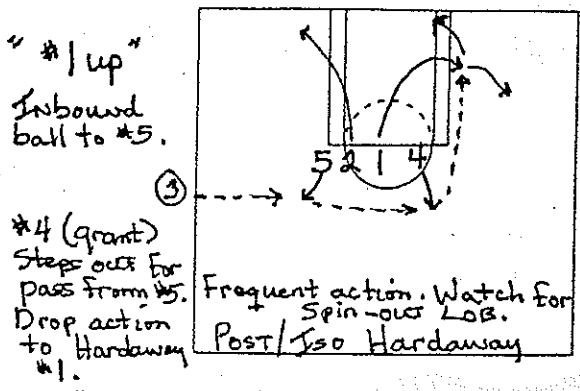 " #1 up"
Inbound
ball to #5.
5 2 1 4
3
#4 (grant)
Steps out for
pass from #5.
Drop action
to Hardaway
#1.
Frequent action. Watch for
Spin-out LOB.
Post/Iso Hardaway